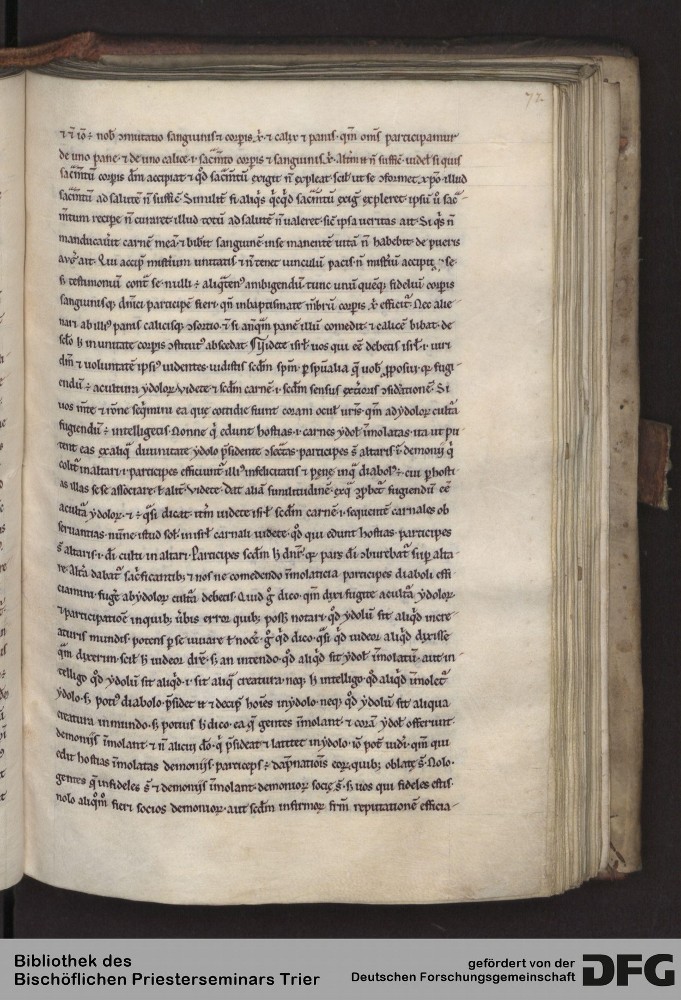 72
⁊ ē iō ÷ nob̄ ɔmutatio sanguinis ⁊ corpis x̄. ⁊ calix ⁊ panis. qm̄ om̄s participamur
de uno pane. ⁊ de uno calice. i. sac̄mto corpis ⁊ sanguinis x̄. n̄ suffic̄ si quis
sac̄mtū corpis dm̄ accipiat ⁊ qd̄ sac̄mtū exigit n̄ expleat scil ut se ɔformet xp̄o. illud
sac̄mtū ad salutē n̄ suffic̄. Similit̄ si aliqs sac̄mtū exig̃ expleret. ipsū ū sac̄-
m̄tum recipe n̄ curaret. illud totū ad salutē n̄ ualeret. sic̄ ipsa ueritas ait. Si qs n̄
manducauit carnē meā. ⁊ bibit sanguinē. in se manentē uitā n̄ habebit. de pueris
aug̃ ait. Qui accip̄ mistium unitatis ⁊ n̄ tenet uinculū pacis. n̄ mistiū accipit se.
s; testimoniū cont̄ se. nulli ÷ aliqten ambigendū tunc unū quēq; fideliū corpis
sanguinisq; dn̄ici participē fieri. qn̄ in baptismate m̄brū corpis x̄ efficit̄. Nec alie-
nari ab illi panis calicisq; ɔsortio. ⁊ si panē illū comedit. ⁊ calicē bibat. de
sclo h̄ in unitate corpis ɔstitut abscedat. Videte isrl̄. uos qui eē debetis isrl̄. i. uiri
dm̄ ⁊ uoluntatē ipsi uidentes. uidistis scdm̄ spm̄. p sp̄ualia uob̄ pposui. fugi-
endū ÷ a cultura ydolor. Videte ⁊ scdm̄ carnē. i. scdm̄ sensus ɔsidationē. Si
uos m̄te ⁊ rōne seqmini ea que cotidie fiunt coram ocul uris. qm̄ ad ydolor cultā
fugiendū ÷ intelligetis. Nonne q̄ edunt hostias. i. carnes ydol īmolatas. ita ut pu-
tent eas ex aliq̄ diuinitate ydolo p̄sidente participes s̄ altaris. i. demonij q̄
colit̄ in altari. i. participes efficiunt illi infelicitatis ⁊ pene in q̄ diabol ÷. cui p hosti-
as illas se se associare. Videte. Dat aliā similitudinē. ex q̄ fugiendū eē
a cultā ydolor. ⁊ ÷ qsi dicat. itm̄ uidete isrl̄ scdm̄ carnē. i. sequentē carnales ob
seruantias. nūne istud sol in isrl̄ carnali uidete. qd̄ qui edunt hostias participes
s̄ altaris. i. di culti in altari. Participes scdm̄ h̄ dnr̄. pars di ɔburebat sup alta-
re. Alta dabat sac̄ficantib; ⁊ nos ne comedendo īmolaticia participes diaboli effi-
ciamini. fuge ab ydolor cultā debetis. Quid g̃ dico. qm̄ dixi fugite a cultā ydolor.
⁊ participationē in quib; uerbis error quib; poss notari. qd̄ ydolū sit aliqd in cre-
aturis mundis. potens p se iuuare t̄ nocē. g̃ qd̄ dico. qsi qd̄ uideor aliqd dixisse
qm̄ dixerim. scil h̄ uideor dic̄e. s; an intendo. qd̄ aliqd sit ydol īmolatū. aut in-
telligo qd̄ ydolū sit aliqd. i. sit aliq̄ creatura. neq; h̄ intelligo. qd̄ aliqd īmolet
ydolo. s; poti diabolo p̄sidet ⁊ decip̄ hoīes in ydolo. neq; qd̄ ydolū sit aliqua
creatura in mundo. s; potius h̄ dico. ea q̄ gentes īmolant. ⁊ corā ydol offerunt.
demonijs īmolant ⁊ n̄ alicui dō. q̄ p̄sideat ⁊ latitet in ydolo. iō pot̄ uideri. qm̄ qui
edit hostias īmolatas demonijs. particeps ÷ dāpnationis eor. quib; oblate s̄. Nolo.
gentes q̄ infideles s̄ ⁊ demonijs īmolant. demonior socie s̄. s; uos qui fideles estis.
nolo aliqm̄ fieri socios demonior. aut scdm̄ infirmor frm̄ reputationē efficia-
Bibliothek des
Bischöflichen Priesterseminars Trier
gefördert von der
Deutschen Forschungsgemeinschaft
DFG